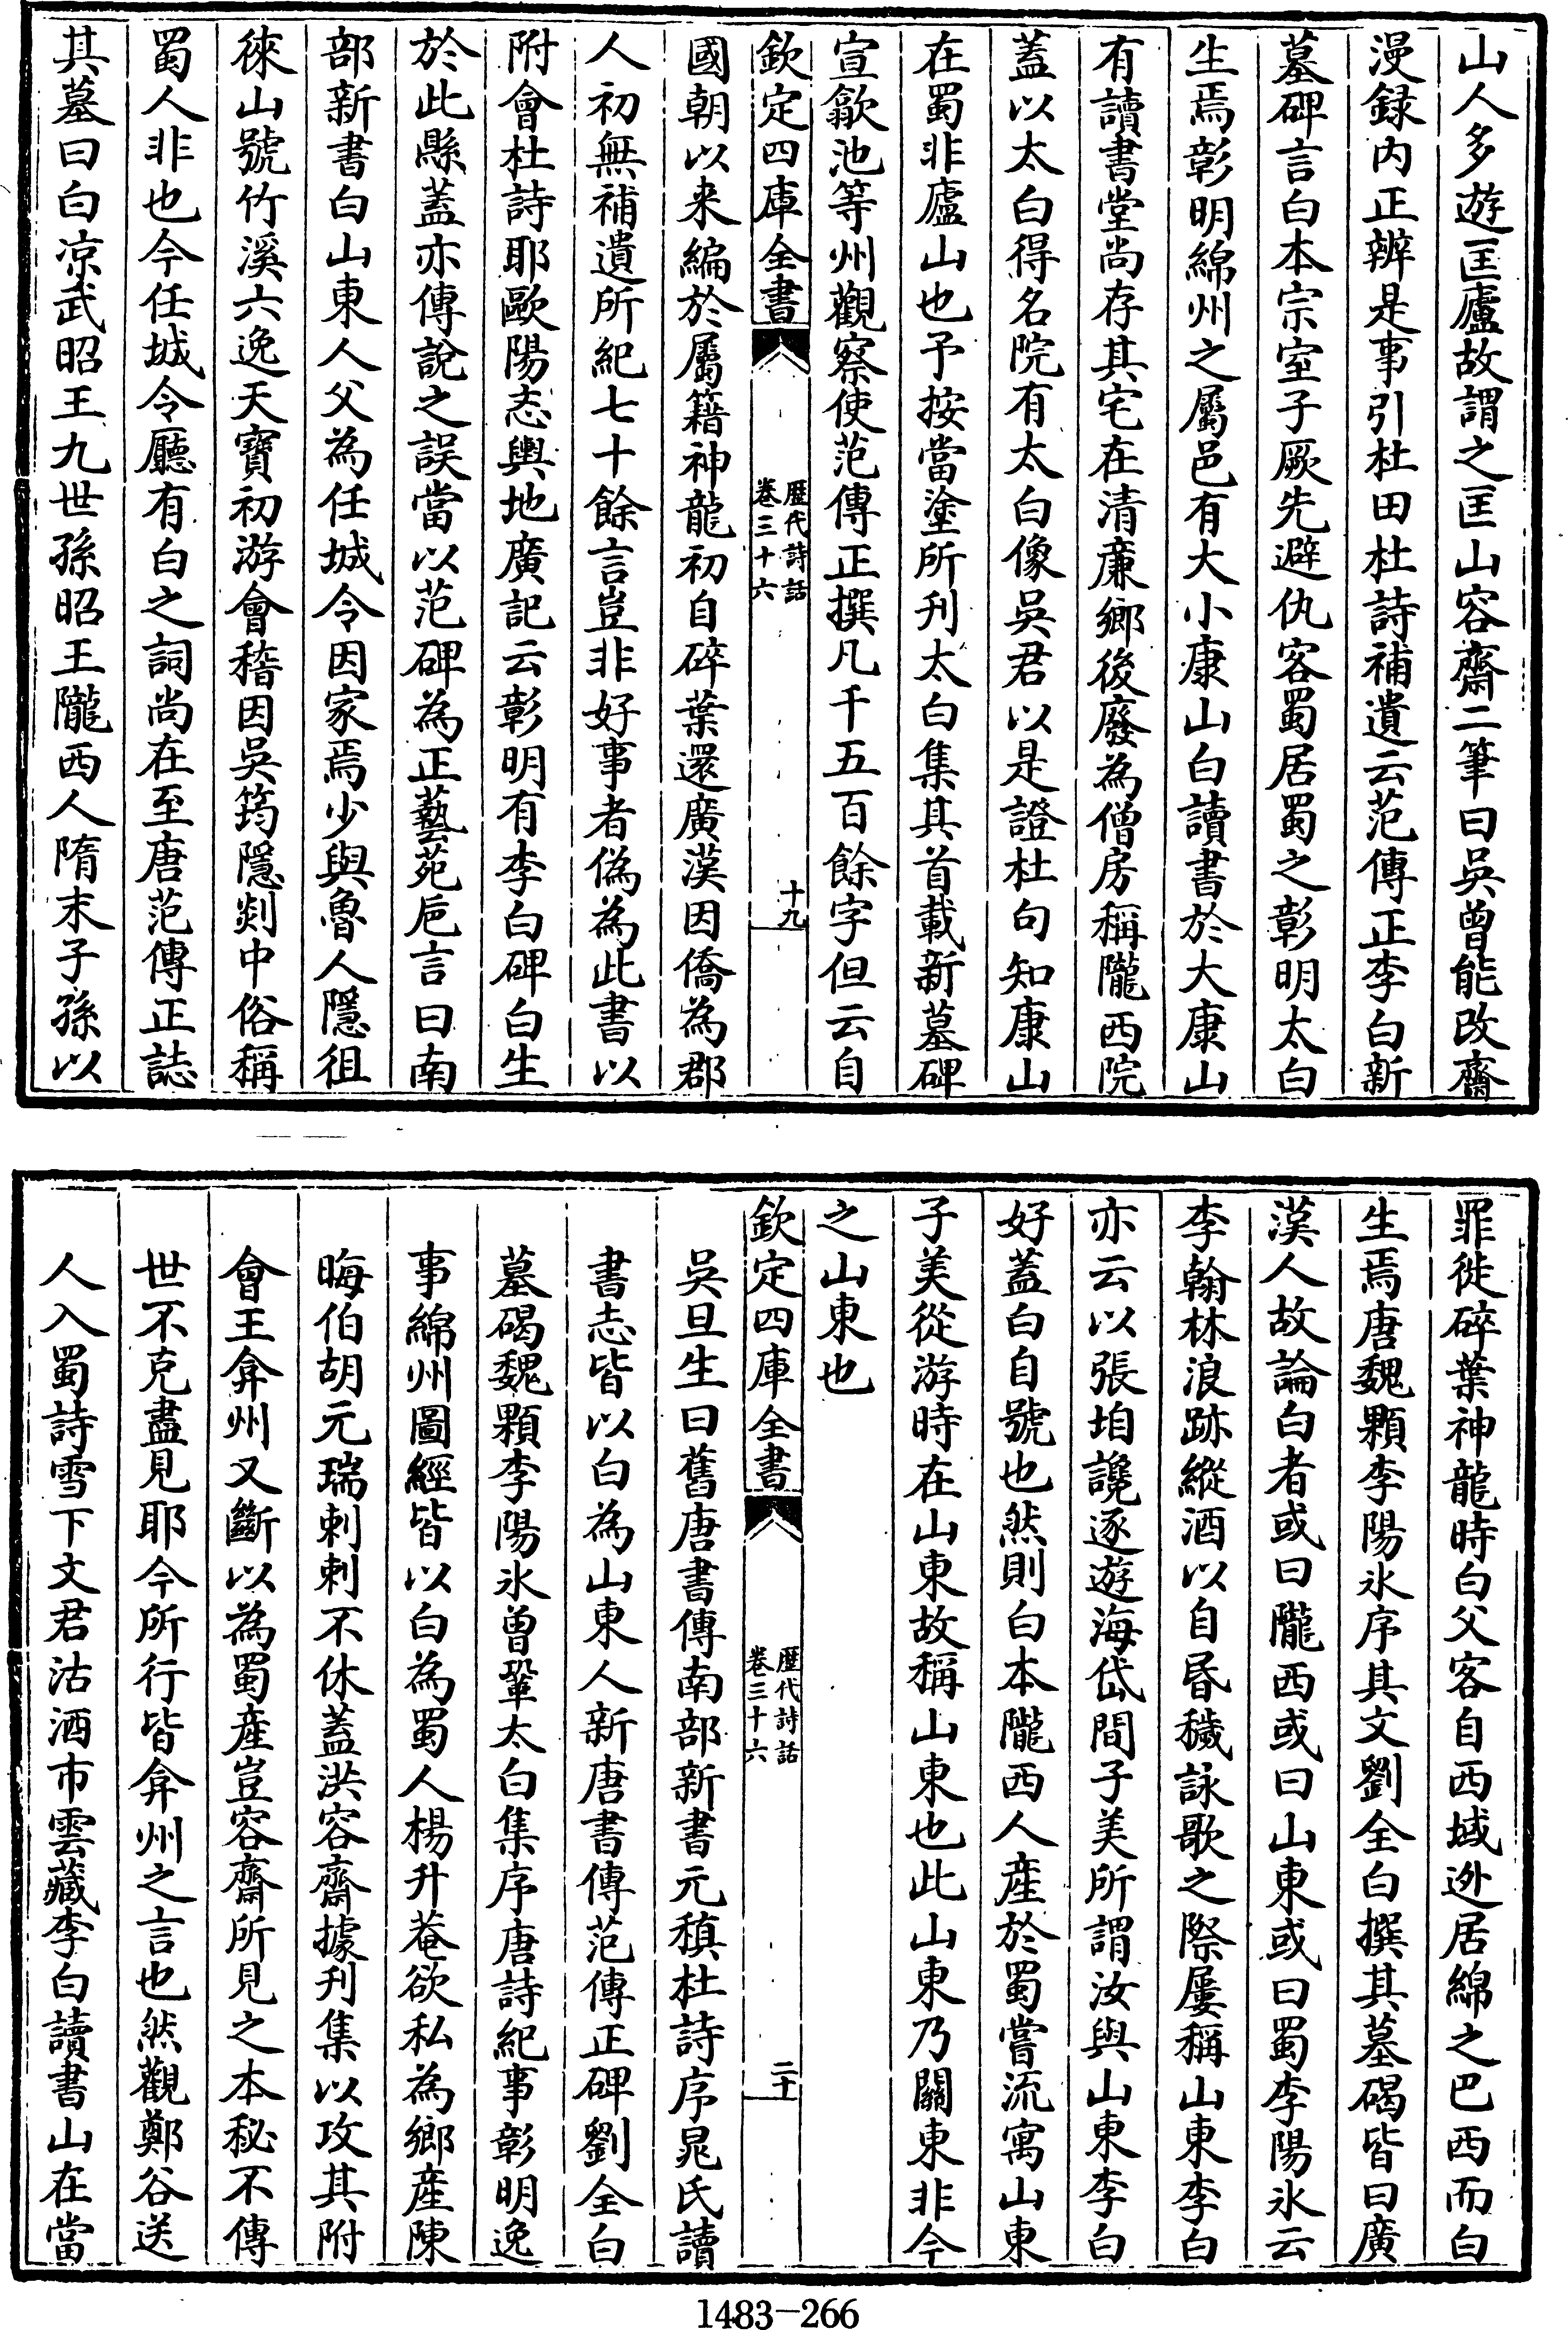 山人多遊匡廬故謂之匡山容齋二筆曰吳曾能改齋
漫録内正辨是事引杜田杜詩補遺云范傳正李白新
墓碑言白本宗室子厥先避仇客蜀居蜀之彰明太白
生焉彰明綿州之屬邑有大小康山白讀書於大康山
有讀書堂尚存其宅在清廉鄉後廢為僧房稱隴西院
蓋以太白得名院有太白像吳君以是證杜句知康山
在蜀非廬山也予按當塗所刋太白集其首載新墓碑
宣歙池等州觀察使范傳正撰凡千五百餘字但云自
欽定四庫全書
歴代詩話
卷三十六
十九
國朝以来編於屬籍神龍初自碎葉還廣漢因僑為郡
人初無補遺所紀七十餘言豈非好事者偽為此書以
附會杜詩耶歐陽忞輿地廣記云彰明有李白碑白生
於此縣蓋亦傳說之誤當以范碑為正藝苑巵言曰南
部新書白山東人父為任城令因家焉少與魯人隱徂
徠山號竹溪六逸天寶初游會稽因吳筠隱剡中俗稱
蜀人非也今任城令廳有白之詞尚在至唐范傳正誌
其墓曰白凉武昭王九世孫昭王隴西人隋末子孫以
罪徙碎葉神龍時白父客自西域迯居綿之巴西而白
生焉唐魏顆李陽氷序其文劉全白撰其墓碣皆曰廣
漢人故論白者或曰隴西或曰山東或曰蜀李陽氷云
李翰林浪跡縱酒以自昏穢詠歌之際屢稱山東李白
亦云以張垍讒逐遊海岱間子美所謂汝與山東李白
好蓋白自號也然則白本隴西人産於蜀嘗流寓山東
子美從游時在山東故稱山東也此山東乃關東非今
之山東也
欽定四庫全書
歴代詩話
卷三十六
二十
吳旦生曰舊唐書傳南部新書元稹杜詩序晁氏讀
書志皆以白為山東人新唐書傳范傳正碑劉全白
墓碣魏顆李陽氷曾鞏太白集序唐詩紀事彰明逸
事綿州圖經皆以白為蜀人楊升菴欲私為鄉産陳
晦伯胡元瑞刺刺不休蓋洪容齋據刋集以攻其附
會王弇州又斷以為蜀産豈容齋所見之本秘不傳
世不克盡見耶今所行皆弇州之言也然觀鄭谷送
人入蜀詩雪下文君沽酒市雲藏李白讀書山在當
1483-266